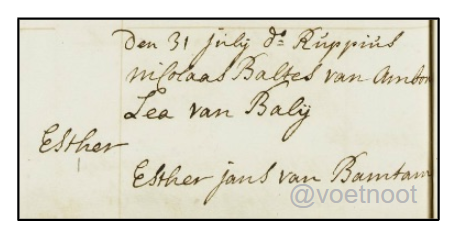 Den 31 julij ds Ruppius
Nicolaas Baltes van Ambon
Lea van Balij
Esther
Esther jans van Bamtam
@voetnoot